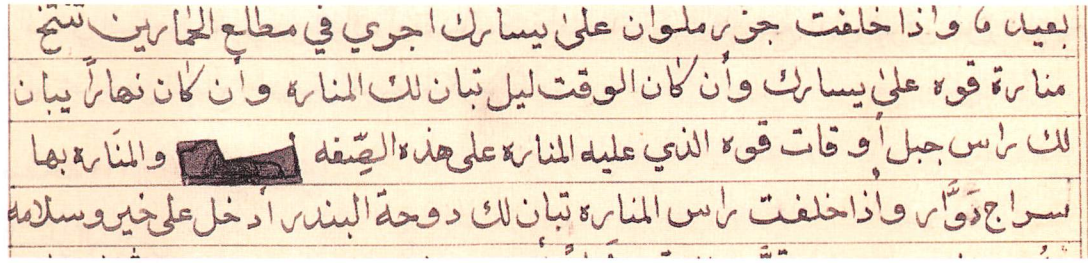 بعيد ٥ واذا خلفت جزر ملوان على يسارك اجري في مطلع الحمارين تنتخ
منارة قوه على يسارك وأن كان الوقت ليل تبان لك المناره وأن كان نهاراً يبان
لك راس جبل أو قات قوه الذي عليه المناره على هذه الصِّفه والمنَاره بها
سراج دَوَّار وأذا خلفت راس المناره تبان لك دوحة البندر أدخل على خير وسلامه